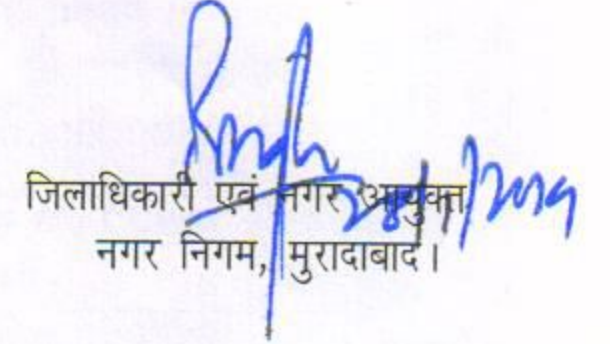 जिलाधिकारी एवं नगर आयुक्त
नगर निगम, मुरादाबाद।